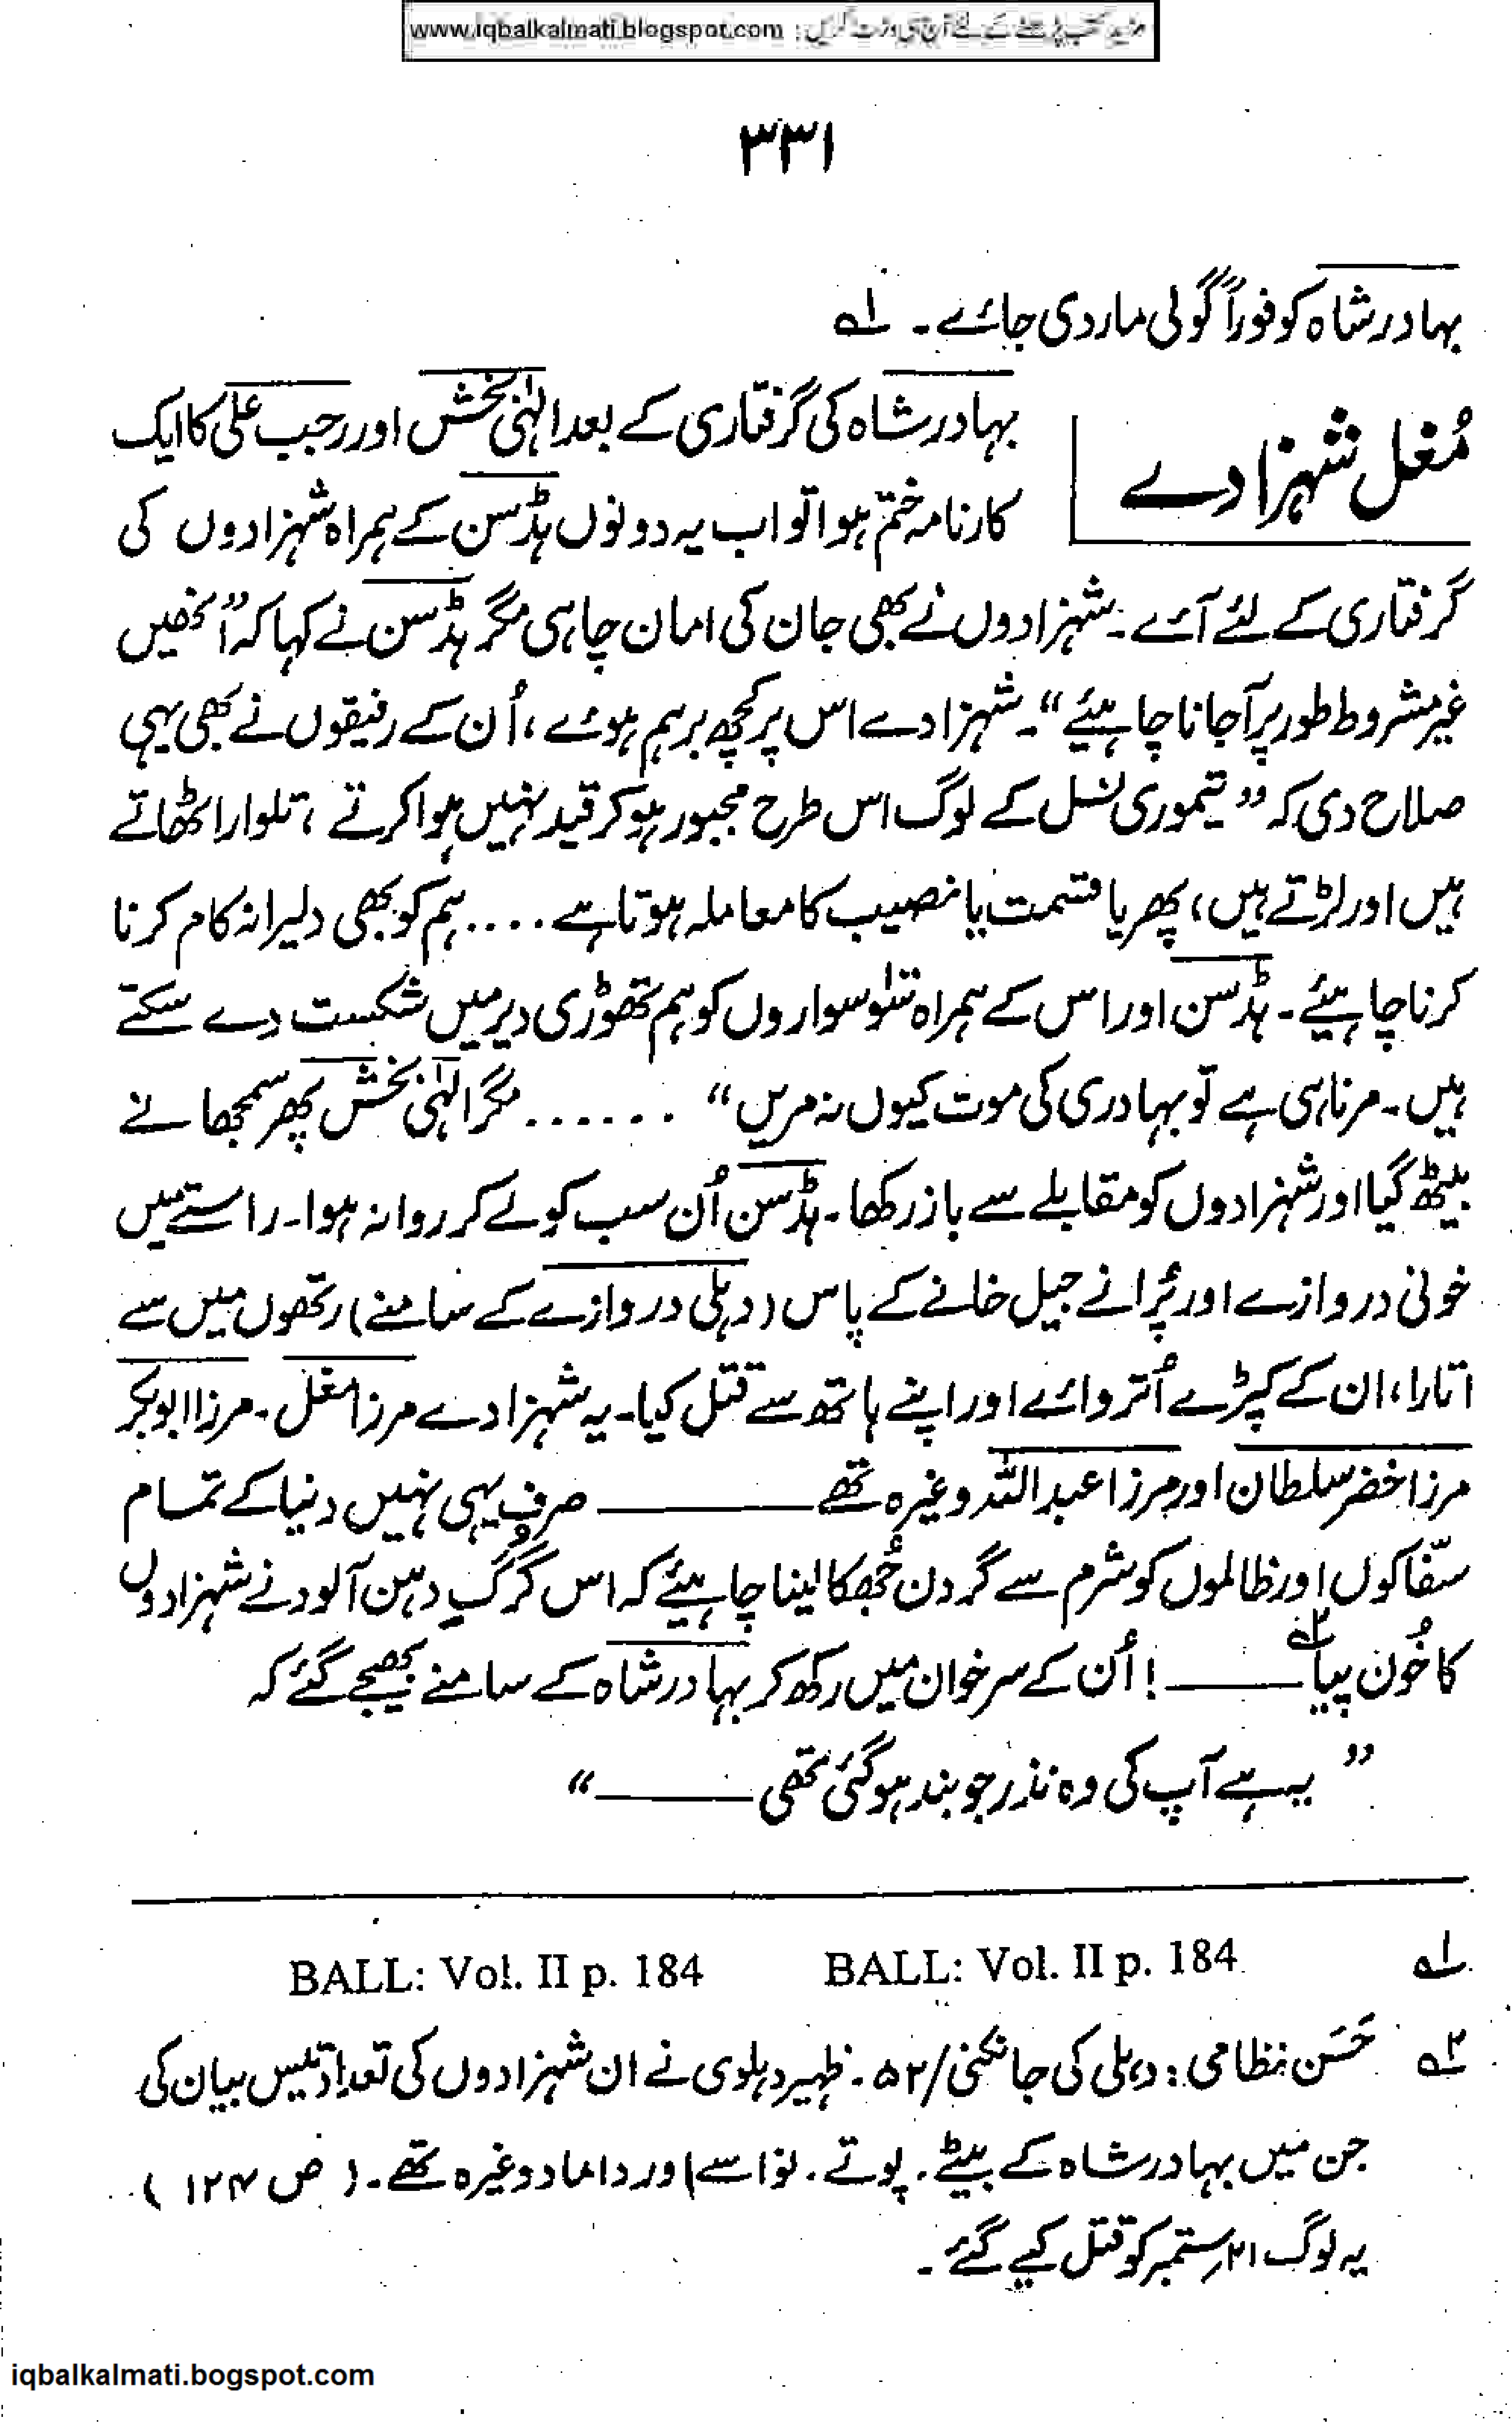 مزید کتب پڑھنے کے لئے آج ہی وزٹ کریں : www.iqbalkalmati.blogspot.com
۳۳۱
بہادر شاہ کو فوراً گولی مار دی جائے۔ ؂۱
مُغل شہزادے
بہادر شاہ کی گرفتاری کے بعد الٰہی بخش اور رجب علی کا ایک
کارنامہ ختم ہوا تو اب یہ دونوں ہڈسن کے ہمراہ شہزادوں کی
گرفتاری کے لئے آئے۔ شہزادوں نے بھی جان کی امان چاہی مگر ہڈسن نے کہا کہ ”انھیں
غیر مشروط طور پر آجانا چاہیئے“۔ شہزادے اس پر کچھ برہم ہوئے، اُن کے رفیقوں نے بھی یہی
صلاح دی کہ ”تیموری نسل کے لوگ اس طرح مجبور ہو کر قید نہیں ہوا کرتے، تلوار اٹھاتے
ہیں اور لڑتے ہیں، پھر یا قسمت یا نصیب کا معاملہ ہوتا ہے .... ہم کو بھی دلیرانہ کام کرنا
کرنا چاہیئے۔ ہڈسن اور اس کے ہمراہ سَو سواروں کو ہم تھوڑی دیر میں شکست دے سکتے
ہیں۔ مرنا ہی ہے تو بہادری کی موت کیوں نہ مریں“ ...... مگر الٰہی بخش پھر سمجھانے
بیٹھ گیا اور شہزادوں کو مقابلے سے باز رکھا۔ ہڈسن اُن سب کو لے کر روانہ ہوا۔ راستے میں
خونی دروازے اور پُرانے جیل خانے کے پاس (دہلی دروازے کے سامنے) رتھوں میں سے
اتارا، ان کے کپڑے اُتروائے اور اپنے ہاتھ سے قتل کیا۔ یہ شہزادے مرزا مغل۔ مرزا ابوبکر
مرزا خضر سلطان اور مرزا عبداللہ وغیرہ تھے ——— صرف یہی نہیں دنیا کے تمام
سفّاکوں اور ظالموں کو شرم سے گردن جُھکا لینا چاہیئے کہ اس گُرگِ دہن آلود نے شہزادوں
کا خُون پیا؂۲ ———! اُن کے سر خوان میں رکھ کر بہادر شاہ کے سامنے بھیجے گئے کہ
”یہ ہے آپ کی وہ نذر جو بند ہو گئی تھی ———“
؂۱ BALL: Vol. II p. 184 BALL: Vol. II p. 184
؂۲ حَسَن نظامی: دہلی کی جانکنی/۵۲۔ ظہیر دہلوی نے ان شہزادوں کی تعداد تیس بیان کی
جن میں بہادر شاہ کے بیٹے۔ پوتے۔ نواسے اور داماد وغیرہ تھے۔ (ص ۱۲۴)
یہ لوگ ۲۱ ستمبر کو قتل کیے گئے۔
iqbalkalmati.bogspot.com